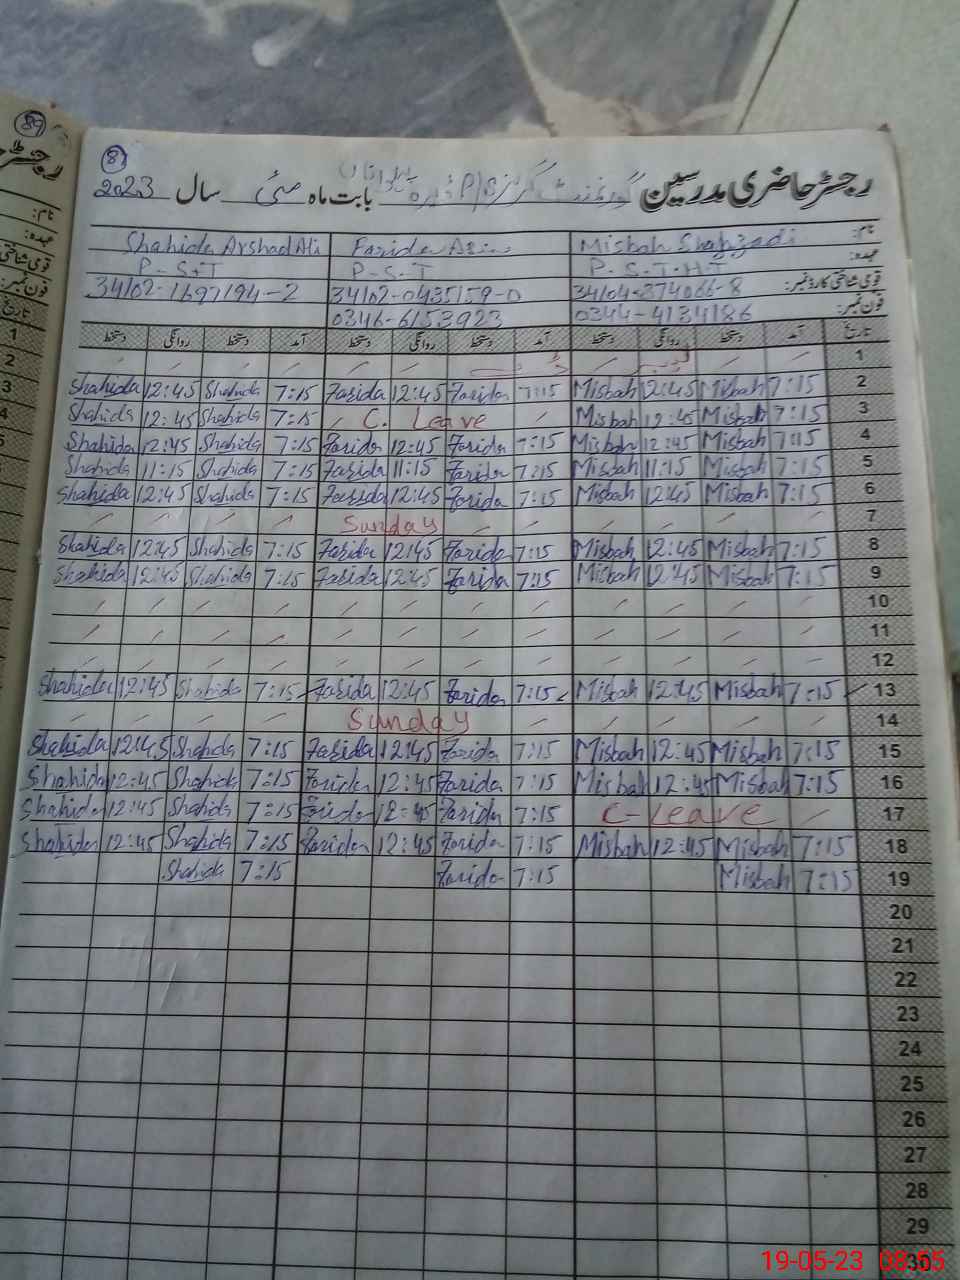 89
رجسٹر حاضری مدرسین گورنمنٹ گرلز P/S بابت ماہ مئی سال 2023
8
نام: Misbah Shahzadi Farida Shahida Arshad Ali
عہدہ: P-S-T-H-T P-S-T P-S-T
قومی شناختی کارڈ نمبر: 34104-874066-8 34102-0435159-0 34102-1697194-2
فون نمبر: 0344-4134186 0346-6153923
تاریخ آمد دستخط روانگی دستخط آمد دستخط روانگی دستخط آمد دستخط روانگی دستخط
1
Shahida 12:45 Shahida 7:15 Farida 12:45 Farida 7:15 Misbah 12:45 Misbah 7:15 2
Shahida 12:45 Shahida 7:15 C. Leave Misbah 12:45 Misbah 7:15 3
Shahida 12:45 Shahida 7:15 Farida 12:45 Farida 7:15 Misbah 12:45 Misbah 7:15 4
Shahida 11:15 Shahida 7:15 Farida 11:15 Farida 7:15 Misbah 11:15 Misbah 7:15 5
Shahida 12:45 Shahida 7:15 Farida 12:45 Farida 7:15 Misbah 12:45 Misbah 7:15 6
Sunday 7
Shahida 12:45 Shahida 7:15 Farida 12:45 Farida 7:15 Misbah 12:45 Misbah 7:15 8
Shahida 12:45 Shahida 7:15 Farida 12:45 Farida 7:15 Misbah 12:45 Misbah 7:15 9
10
11
12
Shahida 12:45 Shahida 7:15 Farida 12:45 Farida 7:15 Misbah 12:45 Misbah 7:15 13
Sunday 14
Shahida 12:45 Shahida 7:15 Farida 12:45 Farida 7:15 Misbah 12:45 Misbah 7:15 15
Shahida 12:45 Shahida 7:15 Farida 12:45 Farida 7:15 Misbah 12:45 Misbah 7:15 16
Shahida 12:45 Shahida 7:15 Farida 12:45 Farida 7:15 C-Leave 17
Shahida 12:45 Shahida 7:15 Farida 12:45 Farida 7:15 Misbah 12:45 Misbah 7:15 18
Shahida 7:15 Farida 7:15 Misbah 7:15 19
20
21
22
23
24
25
26
27
28
29
30
19-05-23 08:55